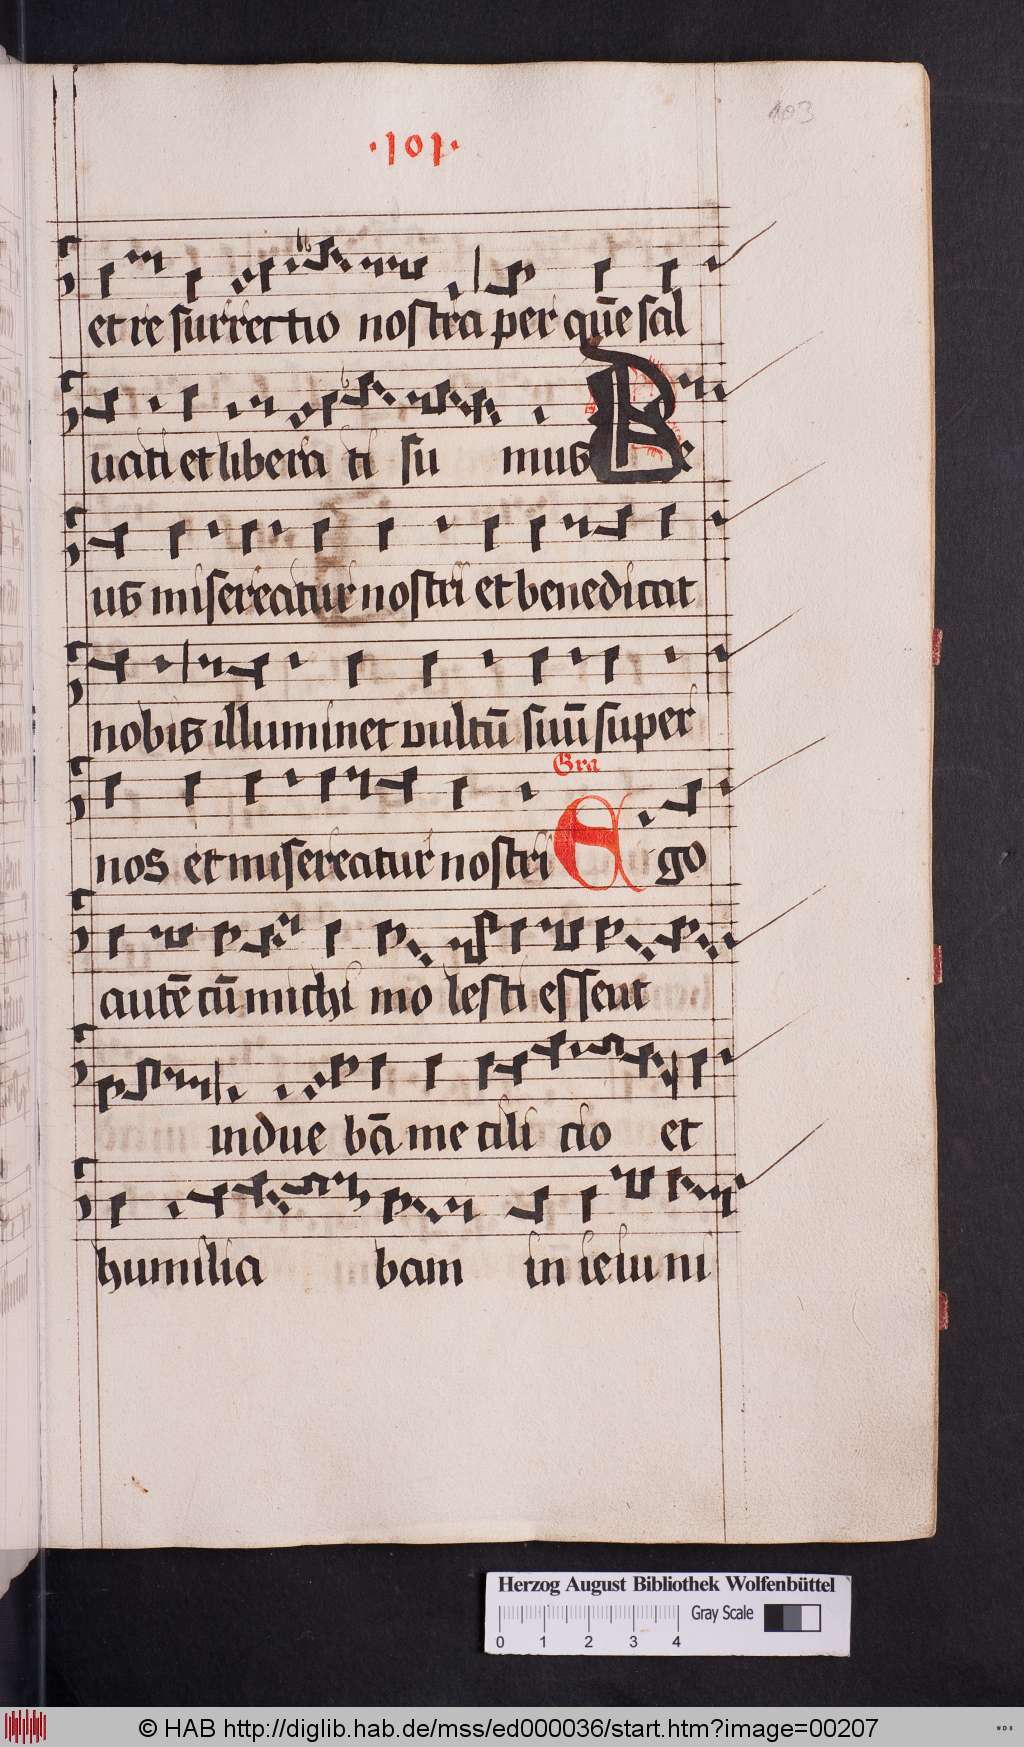 103
·101·
et re surrectio nostra per quē sal
uati et libera ti su mus De
us misereatur nostri et benedicat
nobis illuminet vultū suū super
Gra
nos et misereatur nostri Ego
autē cū michi mo lesti essent
indue bā me cili cio et
humilia bam in ieiu ni
Herzog August Bibliothek Wolfenbüttel
Gray Scale
0 1 2 3 4
© HAB http://diglib.hab.de/mss/ed000036/start.htm?image=00207